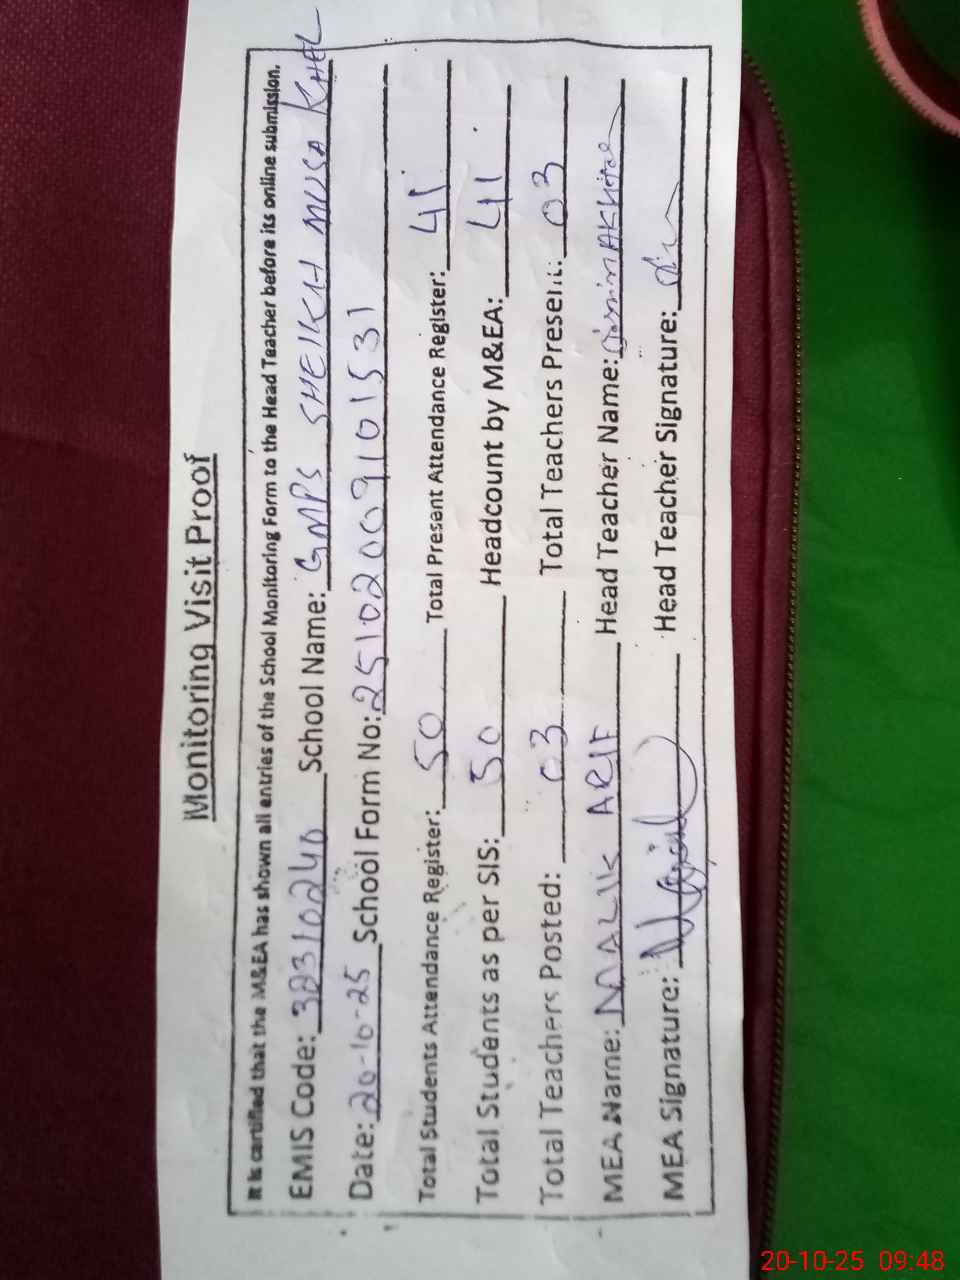 Monitoring Visit Proof
It is certified that the M&EA has shown all entries of the School Monitoring Form to the Head Teacher before its online submission.
EMIS Code: 38310240 School Name: GMPS SHEIKH MUSA KHEL
Date: 20-10-25 School Form No: 25102009101531
Total Students Attendance Register: 50 Total Present Attendance Register: 41
Total Students as per SIS: 50 Headcount by M&EA: 41
Total Teachers Posted: 03 Total Teachers Present: 03
MEA Name: MALIK ARIF Head Teacher Name: AKHTAR
MEA Signature: Head Teacher Signature:
20-10-25 09:48